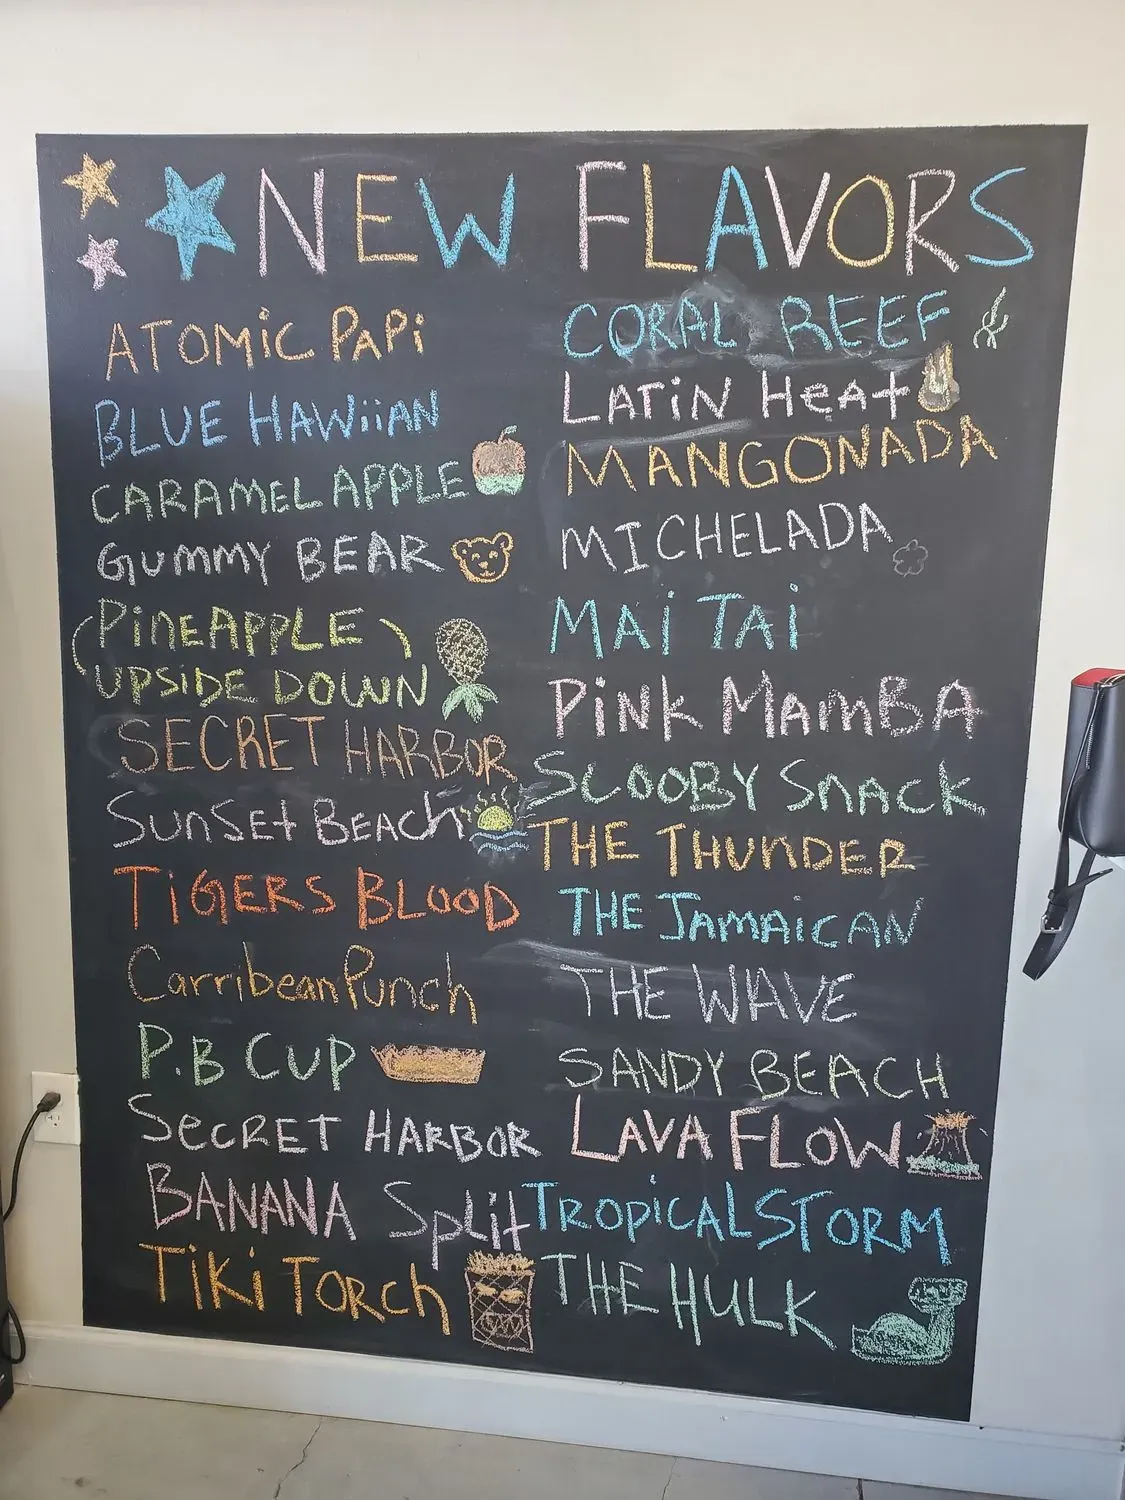 NEW FLAVORS
ATOMiC PAPi
BLUE HAWiiAN
CARAMEL APPLE
GUMMY BEAR
(PiNEAPPLE)
UPSiDE DOWN
SECRET HARBOR
SUnSEt BEACh
TiGERS BLOOD
Carribean Punch
P.B CUP
SeCRET HARBOR
BANANA Split
TiKi TORCh
CORAL REEF
LATiN HeAt
MANGONADA
MICHELADA
MAi TAi
PiNK MAMBA
SCOOBY SnACK
THE THUNDER
THE JAMAiCAN
THE WAVE
SANDY BEACH
LAVA FLOW
TROPiCAL STORM
THE HULK